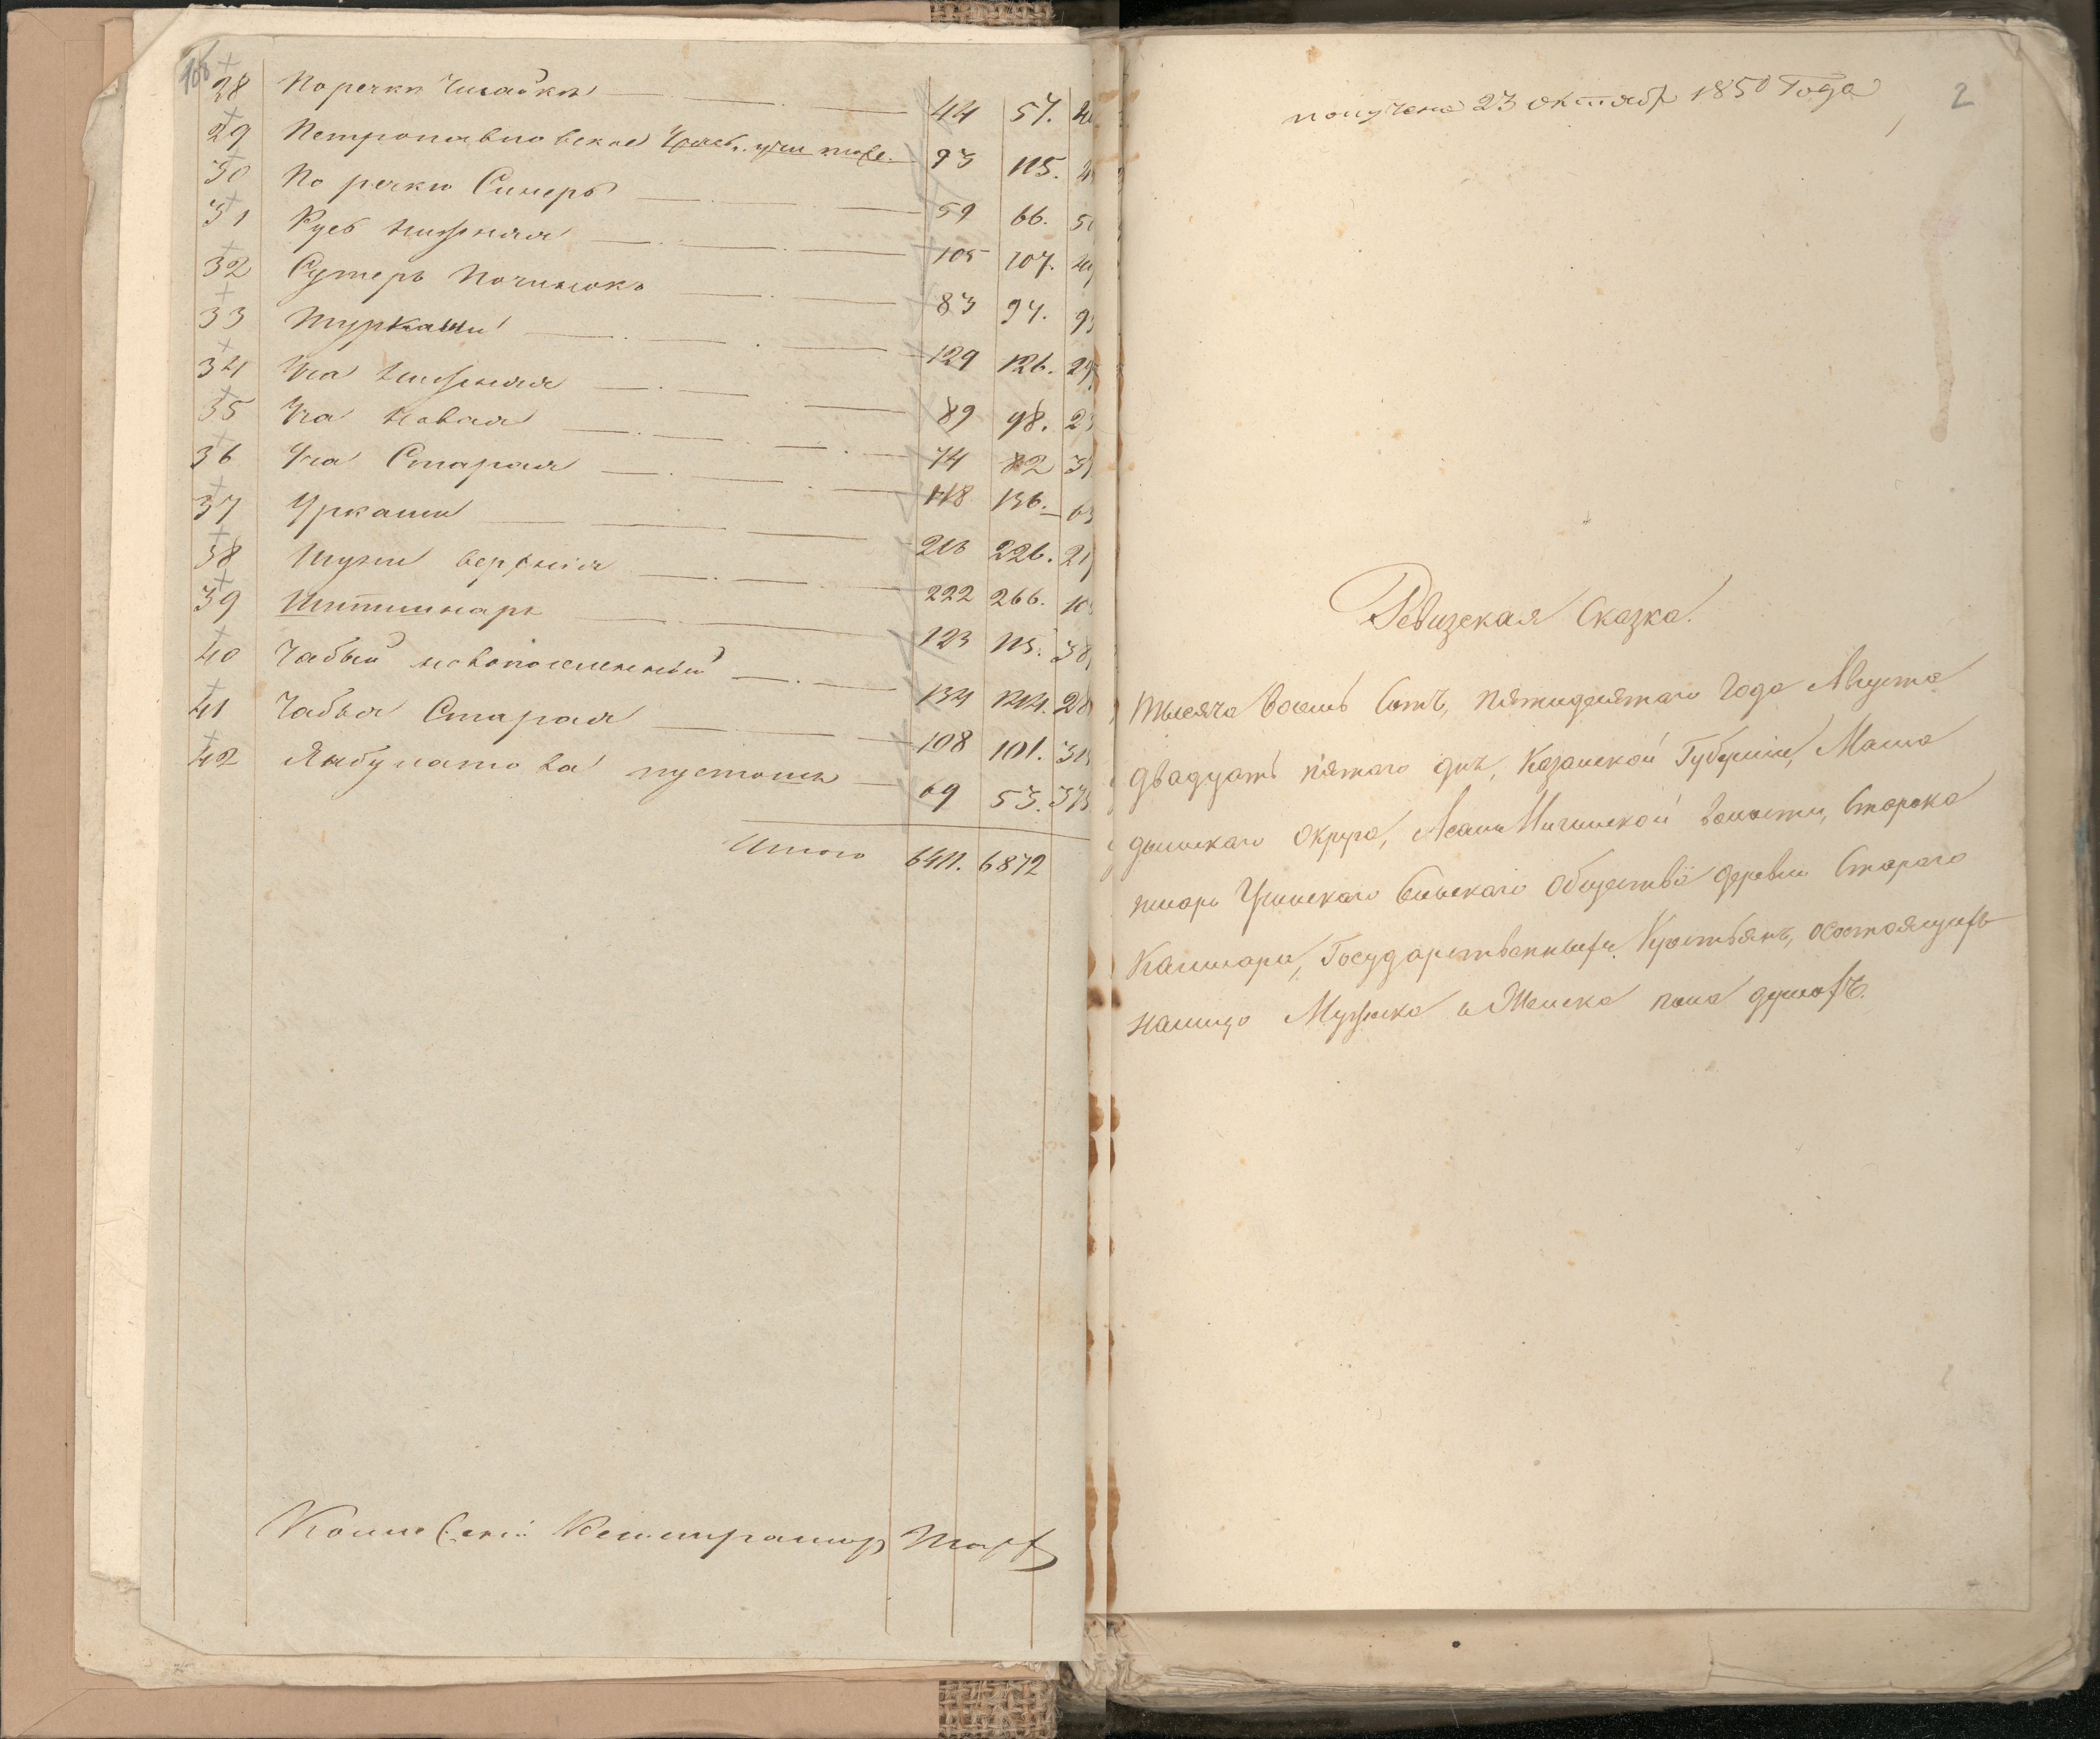 28 По речки 44 57.
29 Петропавловское 93 115.
30 По речки Синеръ 59 66.
31 Русь нижняя 105 107.
32 Сумеръ Починокъ 83 94.
33 129 126.
34 Уча нижняя 89 98.
35 Уча новая 74 82
36 Уча Старая 118 136.
37 Уркаши 213 226.
38 Шуни верхнія 222 266.
39 Шитшинаръ 123 115.
40 Чабьи новопоселенный 134 144.
41 Чабья Старая 108 101.
42 Янбулатова пустошь 69 53.
Итого 6411. 6872
Регистраторъ
получена 23 октября 1850 Года
2
Ревизская Сказка.
Тысяча восемь сотъ, пятидесятаго Года Августа
двадцать пятаго дня, Казанской Губерніи, Мама
дышскаго Округа, волости, Старока
Учинскаго Сельскаго Общества деревни Стараго
Государственныхъ Крестьянъ, состоящихъ
налицо Мужеска и Женска пола душахъ.